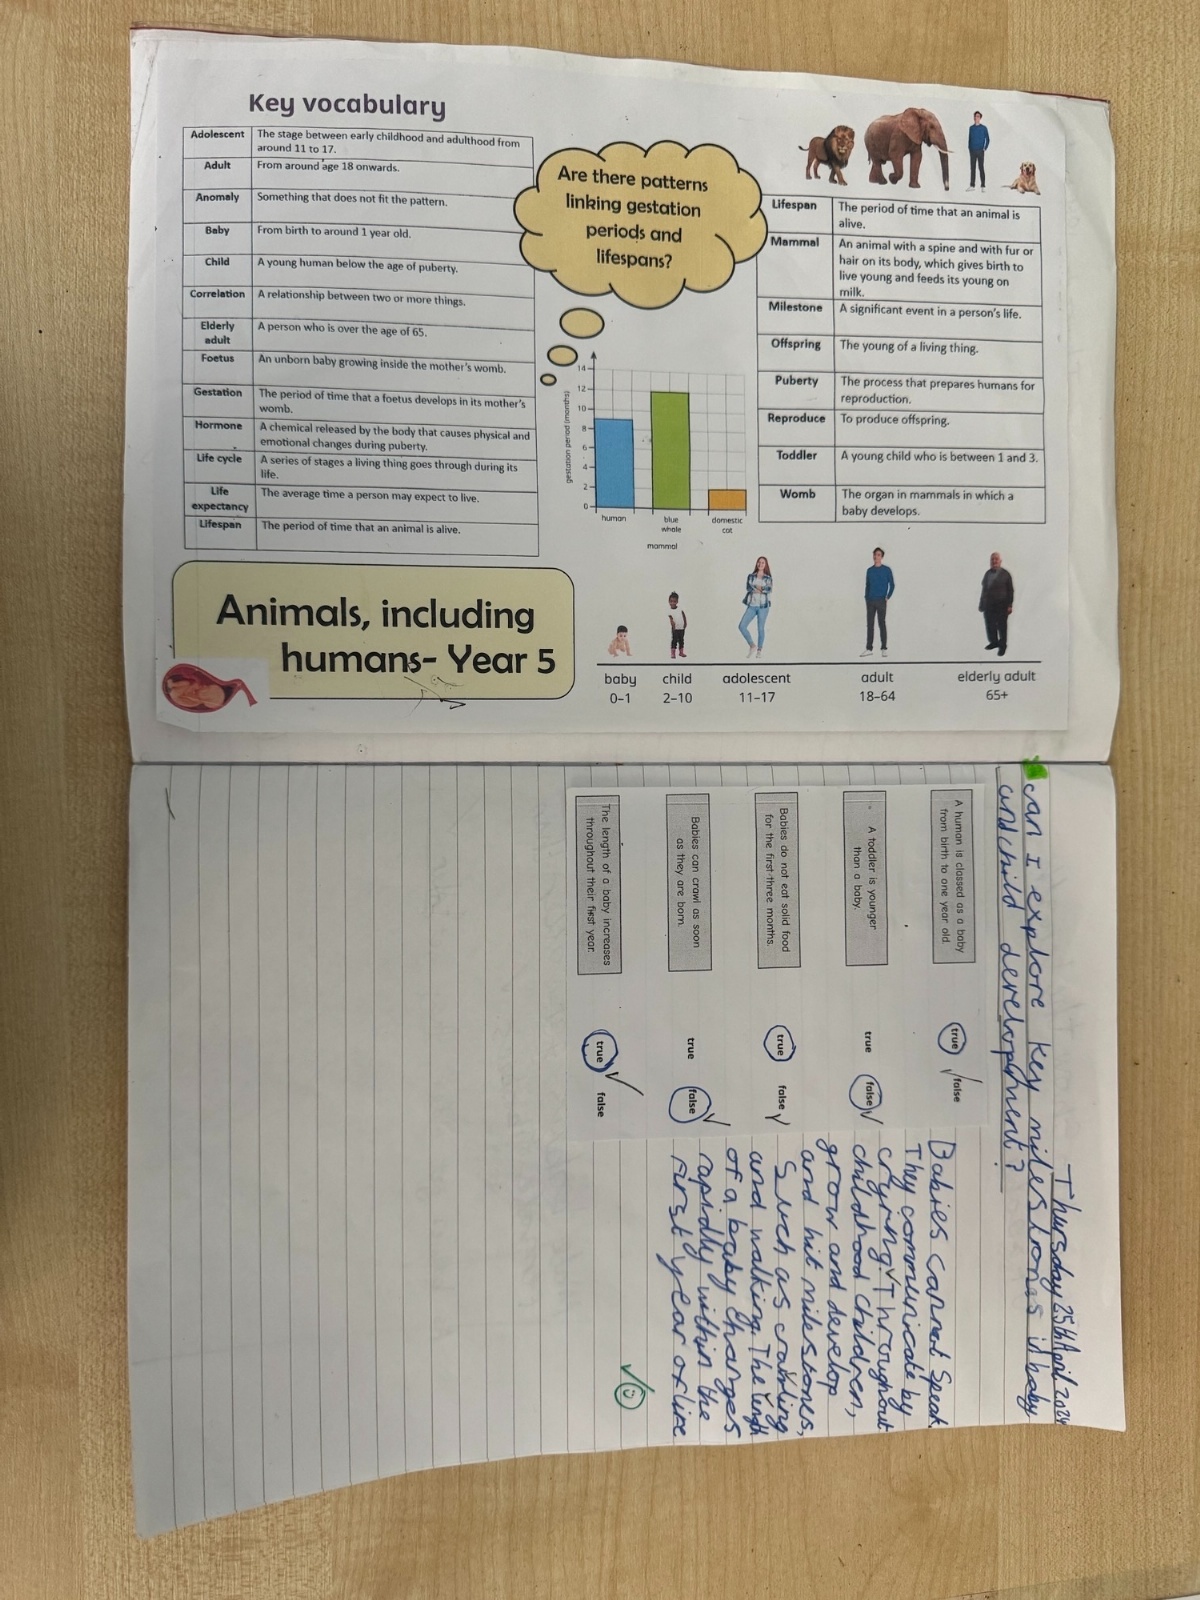 Key vocabulary
Adolescent The stage between early childhood and adulthood from
around 11 to 17.
Adult From around age 18 onwards.
Anomaly Something that does not fit the pattern.
Baby From birth to around 1 year old.
Child A young human below the age of puberty.
Correlation A relationship between two or more things.
Elderly
adult A person who is over the age of 65.
Foetus An unborn baby growing inside the mother's womb.
Gestation The period of time that a foetus develops in its mother's
womb.
Hormone A chemical released by the body that causes physical and
emotional changes during puberty.
Life cycle A series of stages a living thing goes through during its
life.
Life
expectancy The average time a person may expect to live.
Lifespan The period of time that an animal is alive.
Are there patterns
linking gestation
periods and
lifespans?
gestation period (months)
14
12
10
8
6
4
2
0
human
blue
whale
domestic
cat
mammal
Lifespan The period of time that an animal is
alive.
Mammal An animal with a spine and with fur or
hair on its body, which gives birth to
live young and feeds its young on
milk.
Milestone A significant event in a person's life.
Offspring The young of a living thing.
Puberty The process that prepares humans for
reproduction.
Reproduce To produce offspring.
Toddler A young child who is between 1 and 3.
Womb The organ in mammals in which a
baby develops.
Animals, including
humans- Year 5
baby
0–1
child
2–10
adolescent
11–17
adult
18–64
elderly adult
65+
Thursday 25th April 2024
can I explore key milestones in baby
and child development?
A human is classed as a baby
from birth to one year old.
true false
A toddler is younger
than a baby.
true false
Babies do not eat solid food
for the first three months.
true false
Babies can crawl as soon
as they are born.
true false
The length of a baby increases
throughout their first year.
true false
Babies cannot speak.
They communicate by
crying. Throughout
childhood children,
grow and develop
and hit milestones,
Such as crawling
and walking. The length
of a baby changes
rapidly within the
first year of life